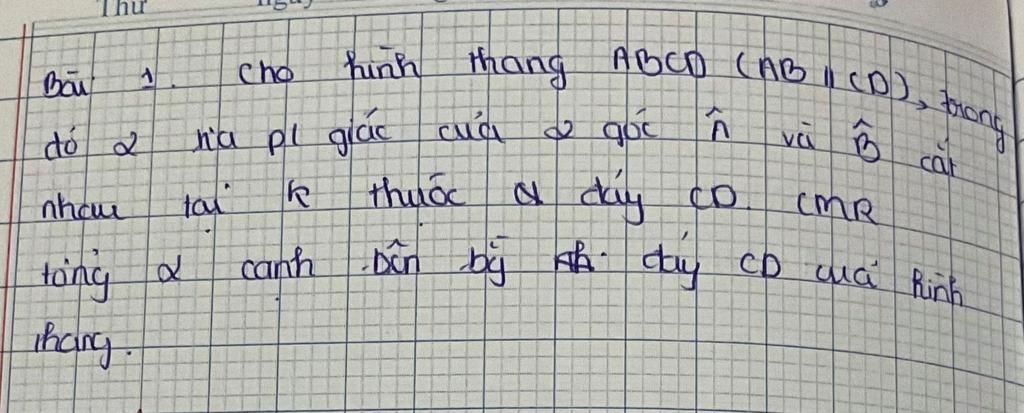 Thứ
Bài 1. Cho hình thang ABCD (AB // CD), trong
đó 2 tia pl giác của 2 góc Â và B̂ cắt
nhau tại K thuộc đáy CD. CMR
tổng 2 cạnh bên bg đáy CD của hình
thang.